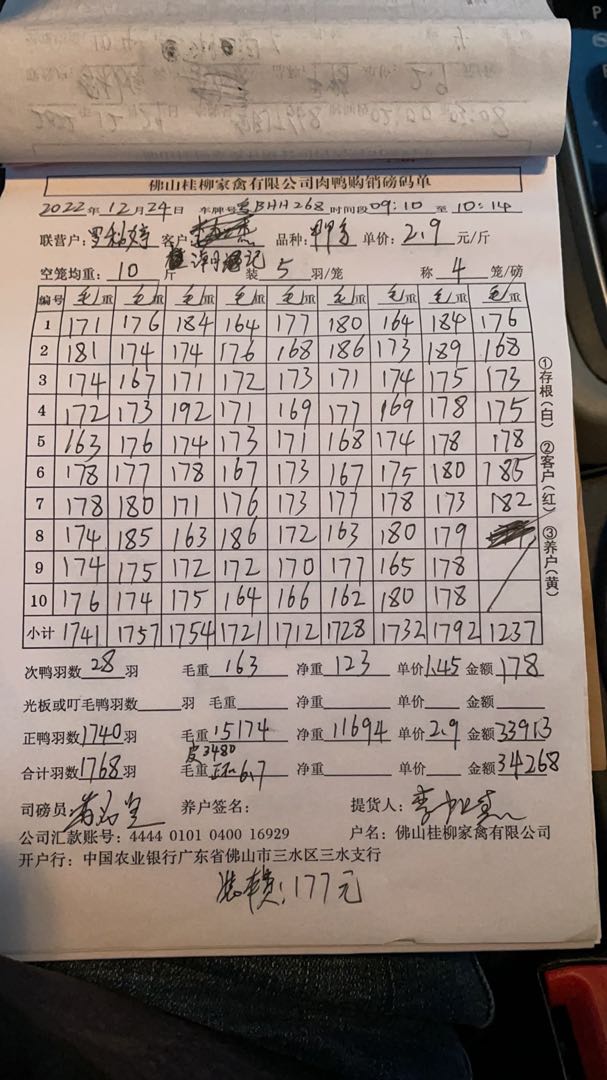 佛山桂柳家禽有限公司肉鸭购销磅码单
2022年12月24日 车牌号粤BHH268时间段09:10至10:14
联营户: 客户 品种: 单价:2.9元/斤
空笼均重:10斤 装5羽/笼 称4笼/磅
编号 毛/重 毛/重 毛/重 毛/重 毛/重 毛/重 毛/重 毛/重 毛/重
1 171 176 184 164 177 180 164 184 176
2 181 174 174 176 168 186 173 189 168
3 174 167 171 172 173 171 174 175 173
4 172 173 192 171 169 177 169 178 175
5 163 176 174 173 171 168 174 178 178
6 178 177 178 167 173 167 175 180 185
7 178 180 171 176 173 177 178 173 182
8 174 185 163 186 172 163 180 179
9 174 175 172 172 170 177 165 178
10 176 174 175 164 166 162 180 178
小计 1741 1757 1754 1721 1712 1728 1732 1792 1237
①存根(白) ②客户(红) ③养户(黄)
次鸭羽数28羽 毛重163 净重123 单价1.45 金额178
光板或叮毛鸭羽数羽 毛重 净重 单价 金额
正鸭羽数1740羽 毛重15174 净重11694 单价2.9 金额33913
皮3480
合计羽数1768羽 毛重 6.7 净重 单价 金额34268
司磅员: 养户签名: 提货人:
公司汇款账号:4444 0101 0400 16929 户名:佛山桂柳家禽有限公司
开户行:中国农业银行广东省佛山市三水区三水支行
装车费:177元